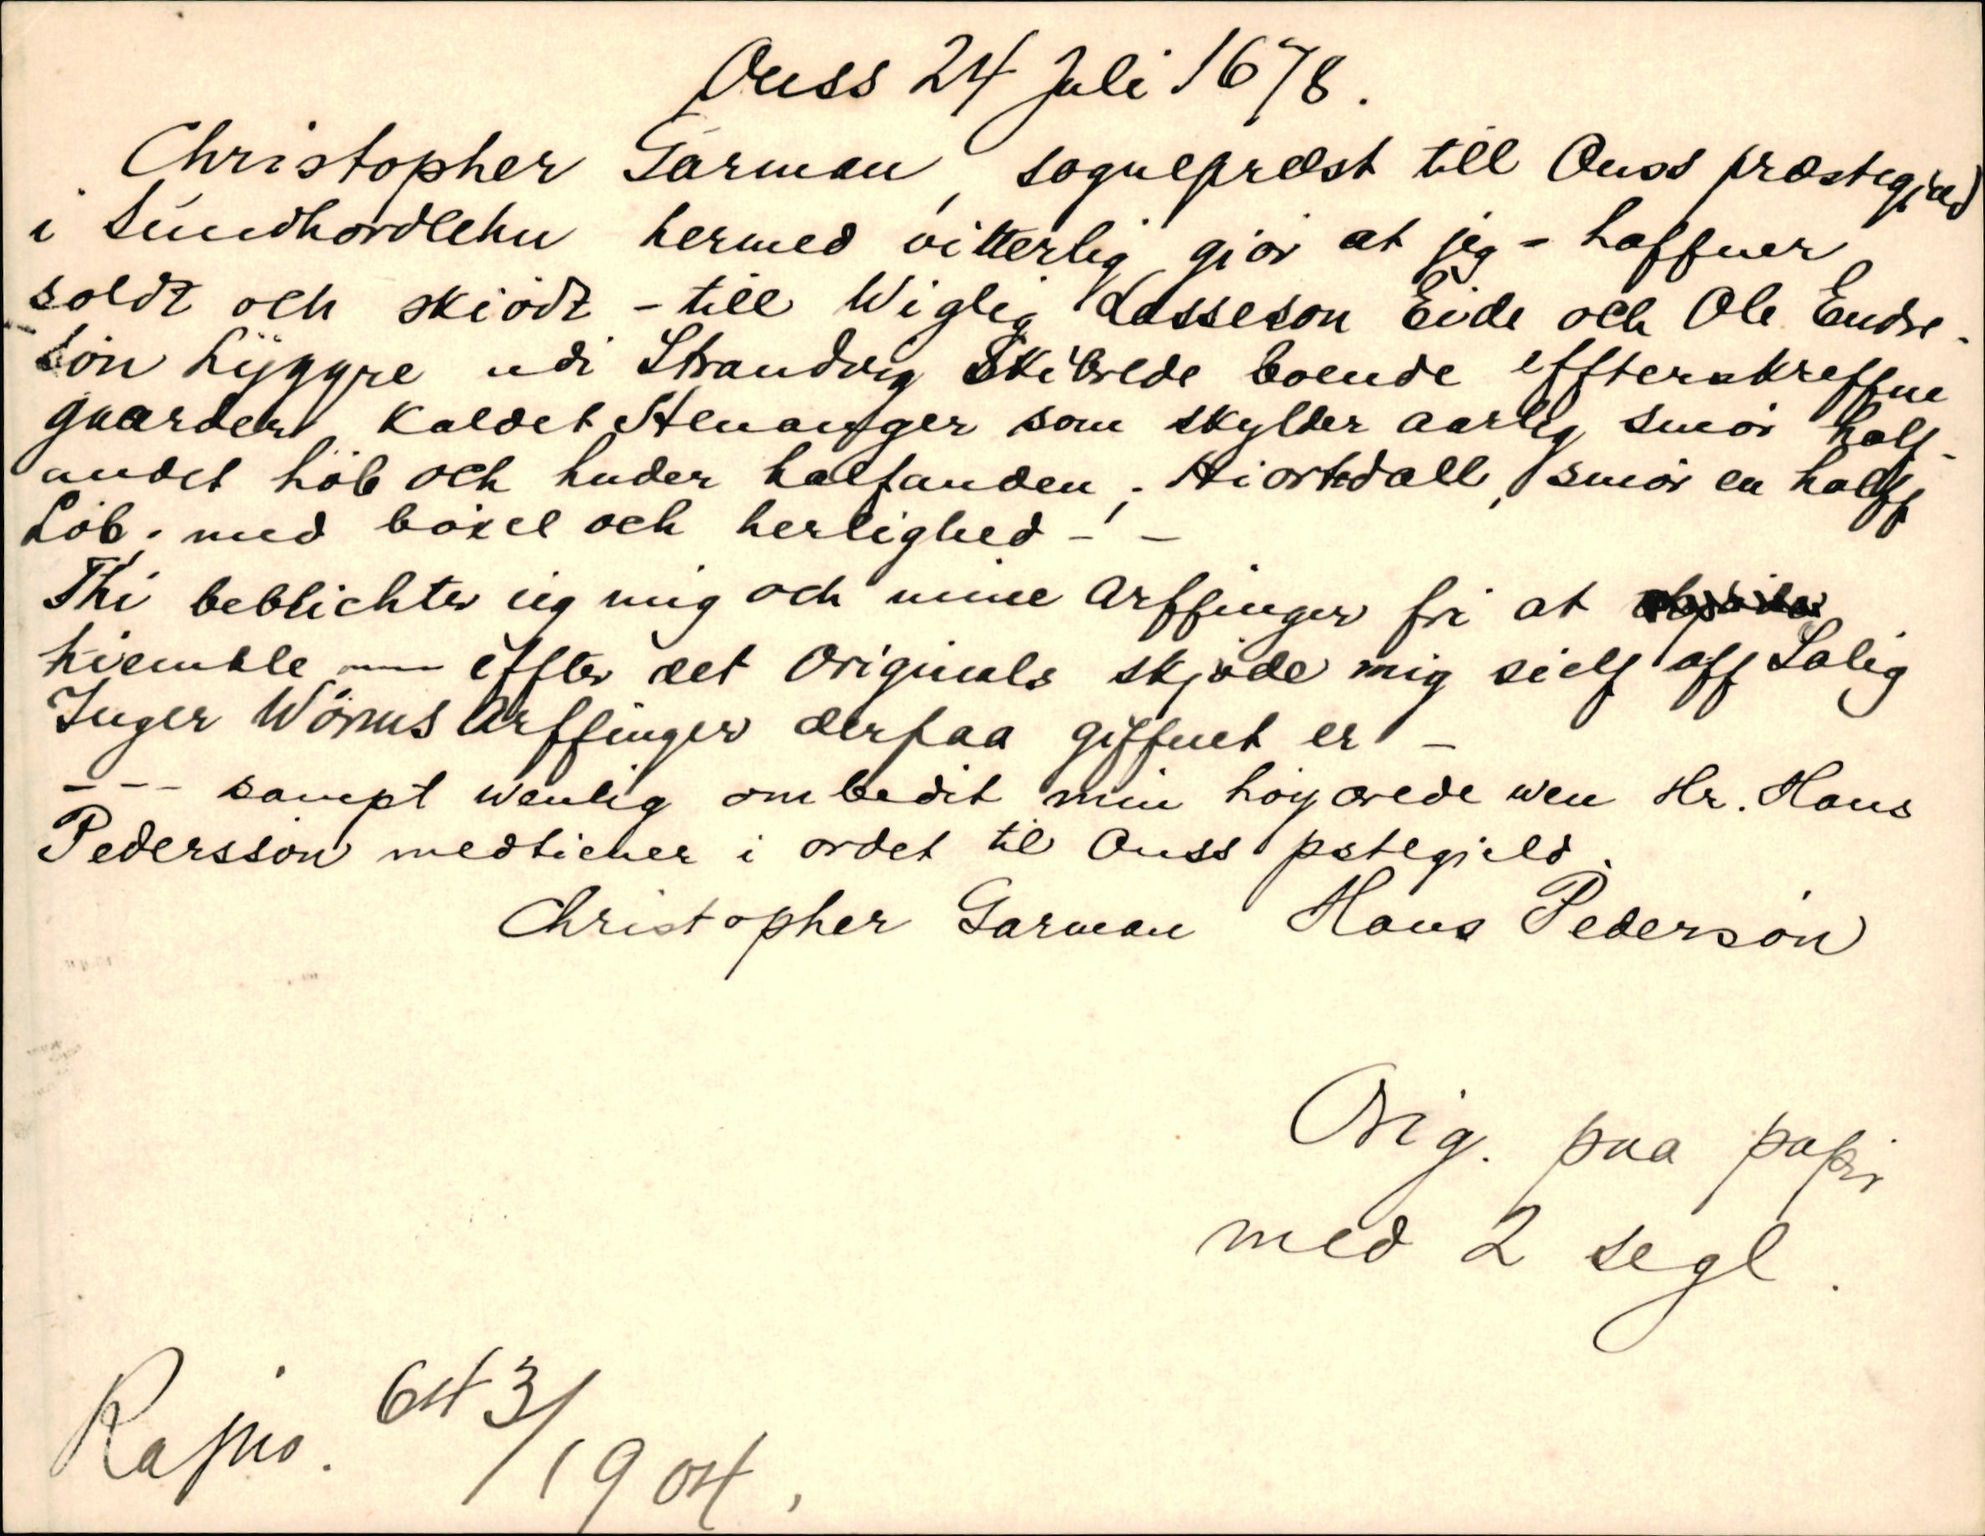 Ouss 24 Juli 1678.
Christopher Garman, sogneprest till Ouss præstegjæld
i Sundhordlehn hermed vitterlig giör at jeg - haffuer
soldt och skiödt - till Wiglig Lasseson Eide och Ole Endre-
sön Lÿggre udi Strandvig Skibrede boende effterskreffne
guarder kaldet Stenanger som skylder aarlig smör half-
andet löb och huder halfanden, Hiortedall, smör en halff
Löb. med böxel och herlighed - -
Thi beblichter ieg mig och mine arffinger fri at
hiemble — effter det Originals skjöde mig sielf aff Salig
Inger Wörms Arffinger derpaa giffuet er -
- - - sampt wenlig ombedit min höyærede wen Hr. Hans
Pedersson medtiener i ordet til Ouss pstegield.
Christopher Garman Hans Pedersön
Orig. paa papir
med 2 segl.
Ra jno. 643/1904.